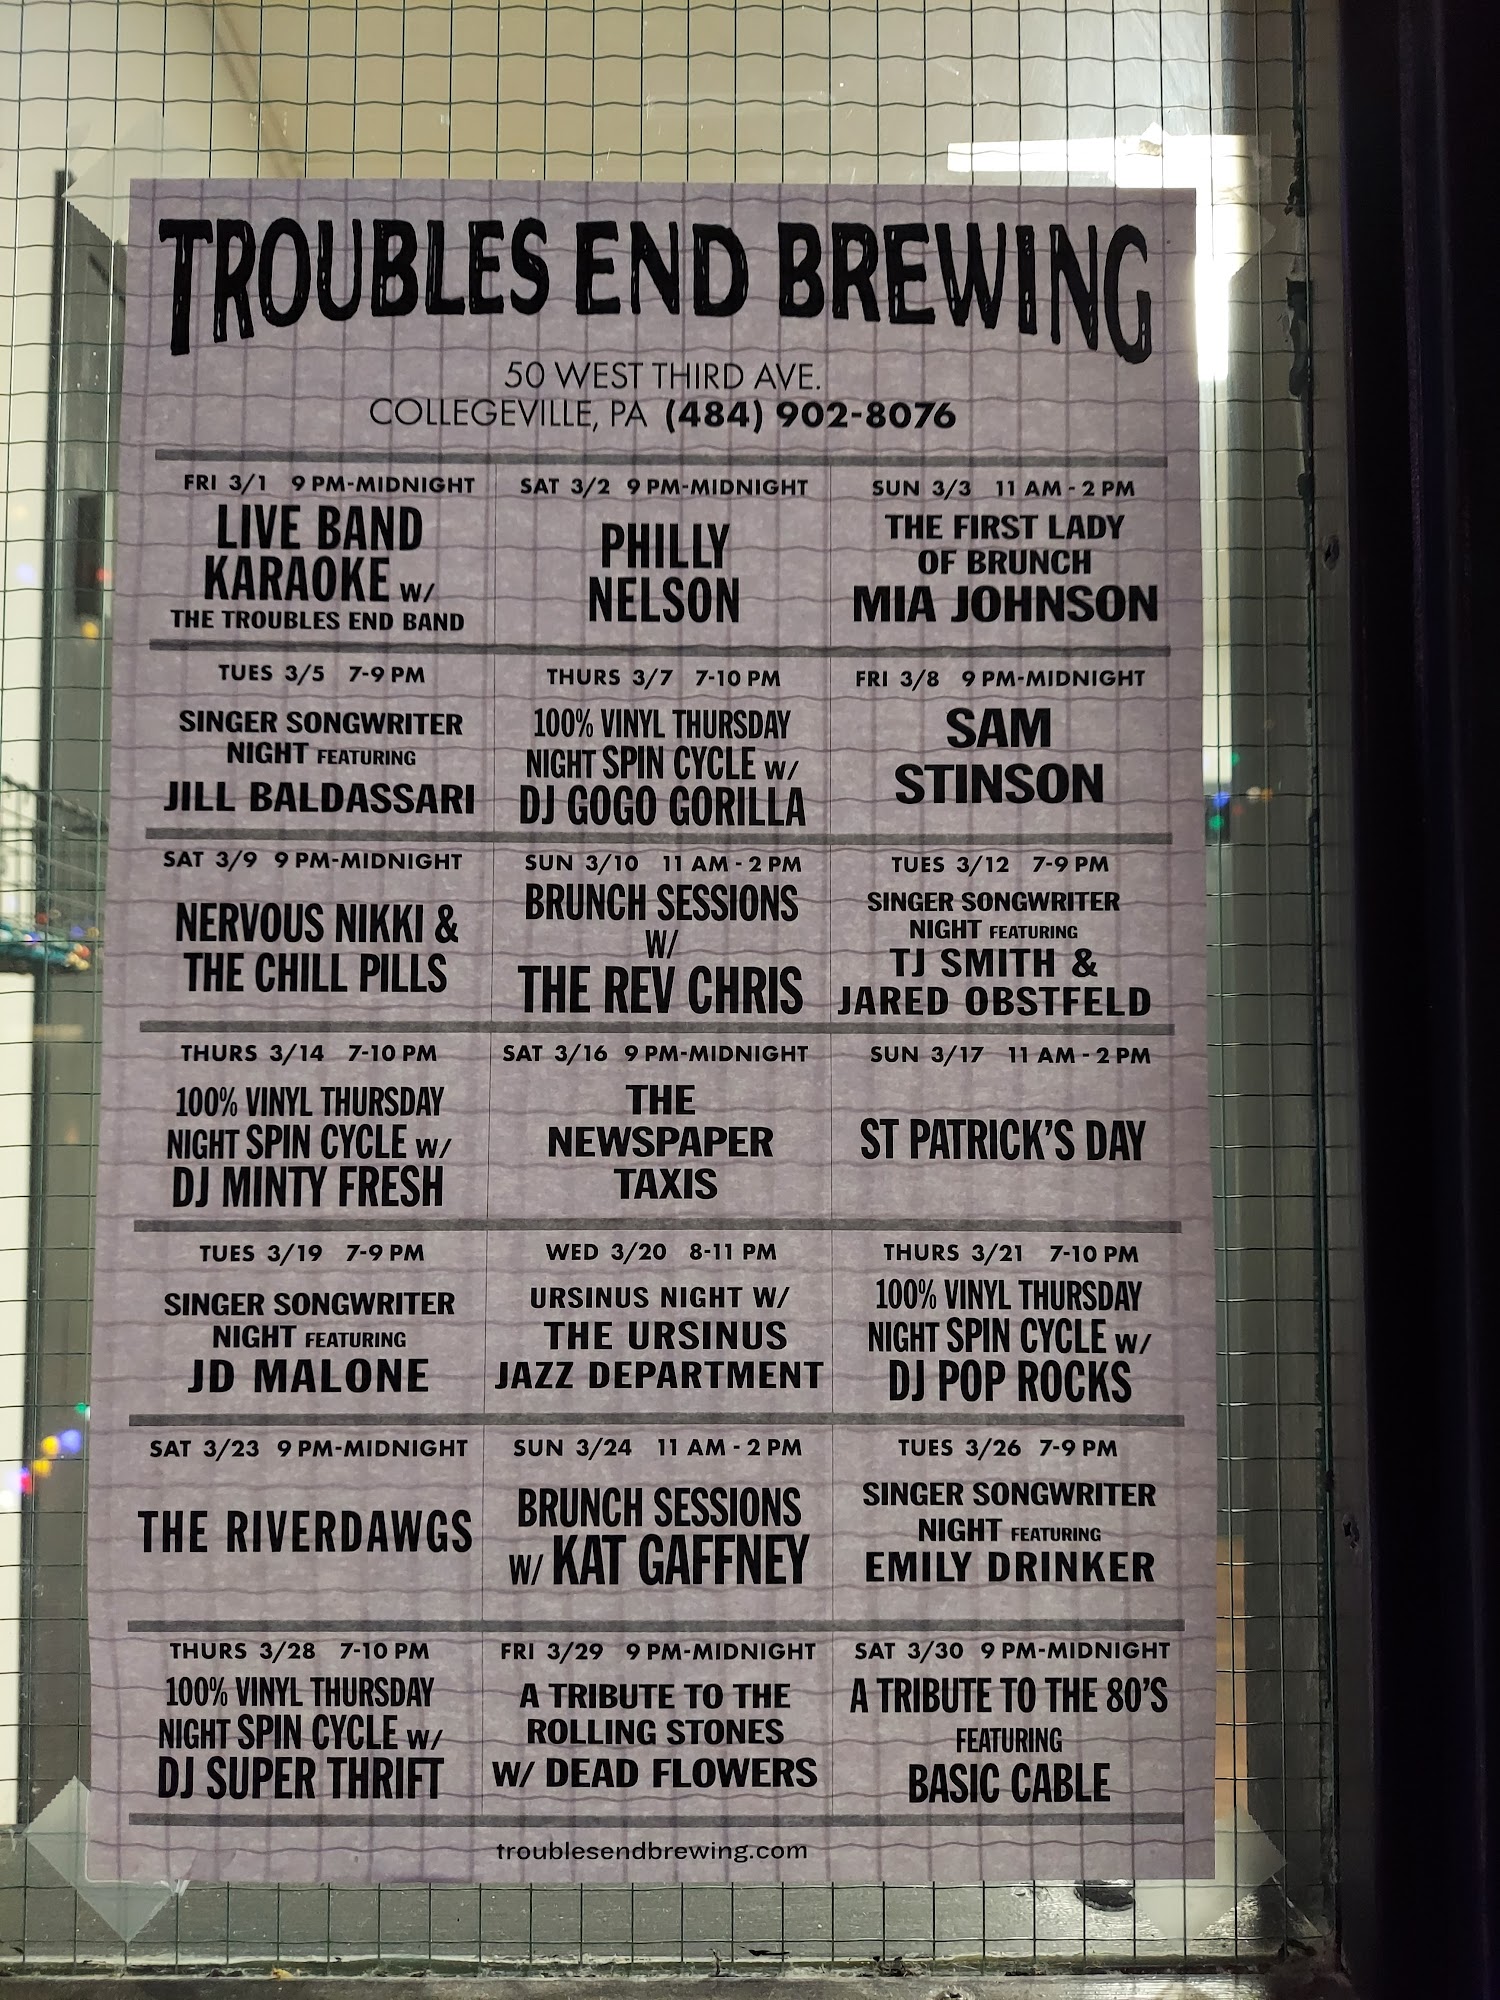 TROUBLES END BREWING
50 WEST THIRD AVE.
COLLEGEVILLE, PA (484) 902-8076
FRI 3/1 9 PM-MIDNIGHT
LIVE BAND
KARAOKE W/
THE TROUBLES END BAND
SAT 3/2 9 PM-MIDNIGHT
PHILLY
NELSON
SUN 3/3 11 AM - 2 PM
THE FIRST LADY
OF BRUNCH
MIA JOHNSON
TUES 3/5 7-9 PM
SINGER SONGWRITER
NIGHT FEATURING
JILL BALDASSARI
THURS 3/7 7-10 PM
100% VINYL THURSDAY
NIGHT SPIN CYCLE W/
DJ GOGO GORILLA
FRI 3/8 9 PM-MIDNIGHT
SAM
STINSON
SAT 3/9 9 PM-MIDNIGHT
NERVOUS NIKKI &
THE CHILL PILLS
SUN 3/10 11 AM - 2 PM
BRUNCH SESSIONS
W/
THE REV CHRIS
TUES 3/12 7-9 PM
SINGER SONGWRITER
NIGHT FEATURING
TJ SMITH &
JARED OBSTFELD
THURS 3/14 7-10 PM
100% VINYL THURSDAY
NIGHT SPIN CYCLE W/
DJ MINTY FRESH
SAT 3/16 9 PM-MIDNIGHT
THE
NEWSPAPER
TAXIS
SUN 3/17 11 AM - 2 PM
ST PATRICK'S DAY
TUES 3/19 7-9 PM
SINGER SONGWRITER
NIGHT FEATURING
JD MALONE
WED 3/20 8-11 PM
URSINUS NIGHT W/
THE URSINUS
JAZZ DEPARTMENT
THURS 3/21 7-10 PM
100% VINYL THURSDAY
NIGHT SPIN CYCLE W/
DJ POP ROCKS
SAT 3/23 9 PM-MIDNIGHT
THE RIVERDAWGS
SUN 3/24 11 AM - 2 PM
BRUNCH SESSIONS
W/ KAT GAFFNEY
TUES 3/26 7-9 PM
SINGER SONGWRITER
NIGHT FEATURING
EMILY DRINKER
THURS 3/28 7-10 PM
100% VINYL THURSDAY
NIGHT SPIN CYCLE W/
DJ SUPER THRIFT
FRI 3/29 9 PM-MIDNIGHT
A TRIBUTE TO THE
ROLLING STONES
W/ DEAD FLOWERS
SAT 3/30 9 PM-MIDNIGHT
A TRIBUTE TO THE 80'S
FEATURING
BASIC CABLE
troublesendbrewing.com